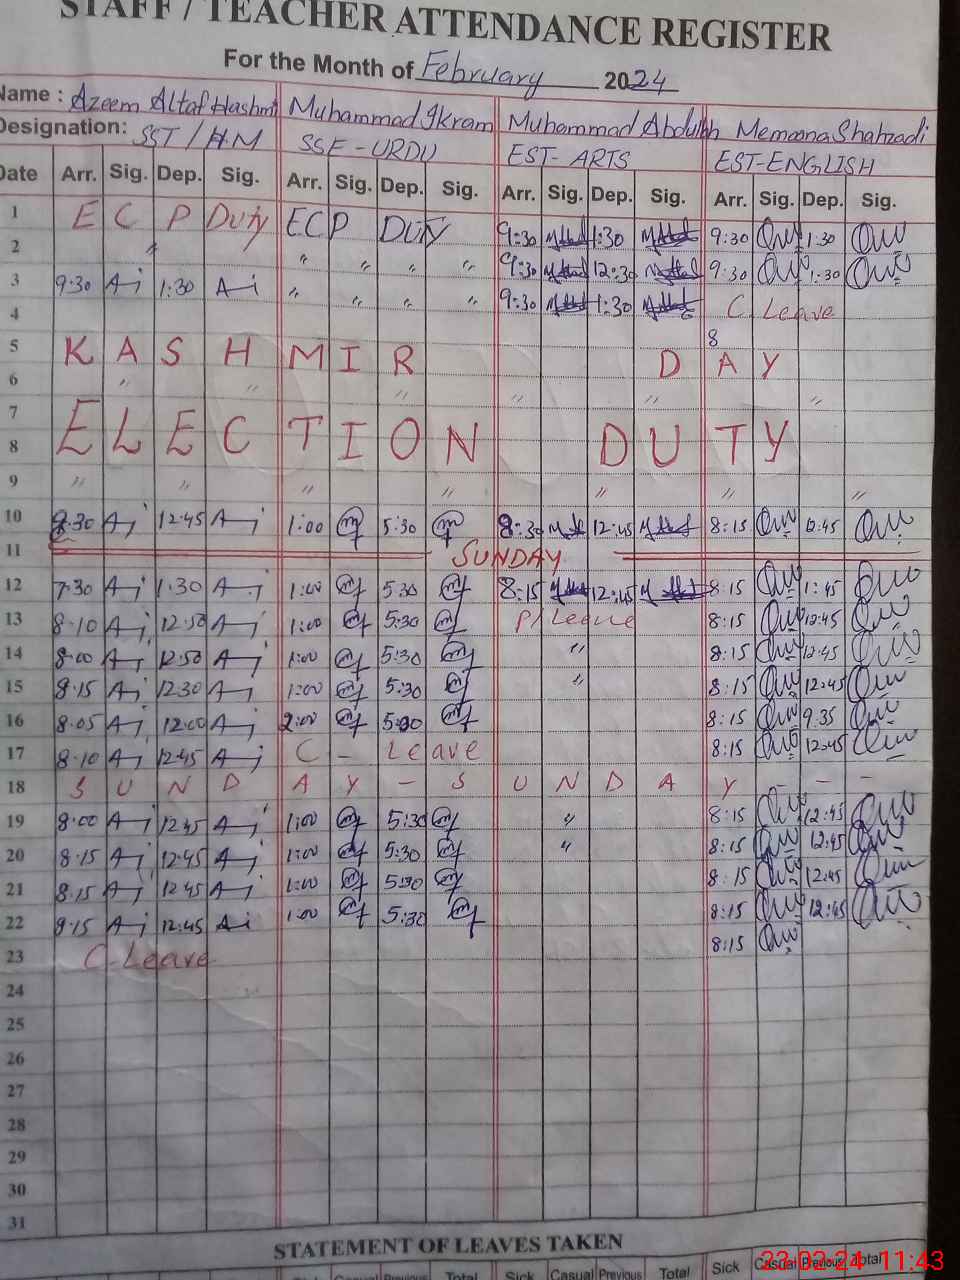 STAFF / TEACHER ATTENDANCE REGISTER
For the Month of February 2024
Name : Azeem Altaf Hashmi Muhammad Ikram Muhammad Abdullah Memoona Shahzadi
Designation: SST / H.M SSE - URDU EST - ARTS EST-ENGLISH
Date Arr. Sig. Dep. Sig. Arr. Sig. Dep. Sig. Arr. Sig. Dep. Sig. Arr. Sig. Dep. Sig.
1 E C P Duty ECP Duty 9:30 1:30 9:30 1:30
2 " " " " 9:30 12:30 9:30 1:30
3 9:30 1:30 " " " " 9:30 1:30 C Leave
4 8
5 K A S H M I R D A Y
6 " " " " " "
7
8 E L E C T I O N D U T Y
9 " " " " " " "
10 8:30 12:45 1:00 5:30 8:30 12:45 8:15 12:45
11 SUNDAY
12 7:30 1:30 1:00 5:30 8:15 12:45 8:15 1:45
13 8-10 12:50 1:00 5:30 P/Leave 8:15 12:45
14 8:00 12:50 1:00 5:30 " 8:15 12:45
15 8.15 12:30 1:00 5:30 " 8:15 12:45
16 8.05 12:00 2:00 5:30 8:15 9.35
17 8.10 12:45 C - Leave 8:15 12:45
18 S U N D A Y - S U N D A Y - - -
19 8:00 12:45 1:00 5:30 " 8:15 12:45
20 8.15 12:45 1:00 5:30 " 8:15 12:45
21 8.15 12:45 1:00 5:30 8:15 12:45
22 8.15 12:45 1:00 5:30 8:15 12:45
23 C-Leave 8:15
24
25
26
27
28
29
30
31
STATEMENT OF LEAVES TAKEN
Sick Casual Previous Total Sick Casual Previous Total Sick Casual Previous Total
23-02-24 11:43